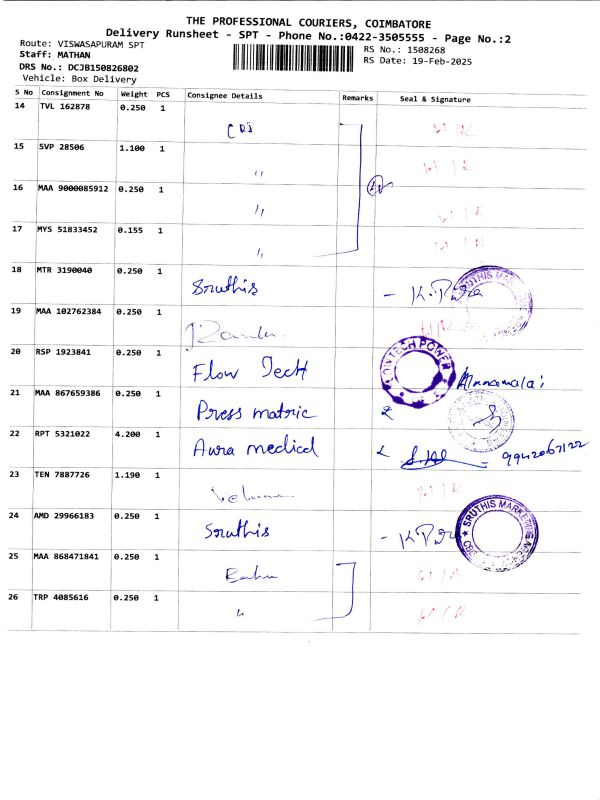 THE PROFESSIONAL COURIERS, COIMBATORE
Delivery Runsheet - SPT - Phone No.:0422-3505555 - Page No.:2
Route: VISWASAPURAM SPT
RS No.: 1508268
Staff: MATHAN
RS Date: 19-Feb-2025
DRS No.: DCJB150826802
Vehicle: Box Delivery
S No Consignment No Weight PCS Consignee Details Remarks Seal & Signature
14 TVL 162878 0.250 1
15 SVP 28506 1.100 1 "
16 MAA 9000085912 0.250 1 "
17 MYS 51833452 0.155 1 "
18 MTR 3190040 0.250 1 Sruthis - K. SRUTHIS
19 MAA 102762384 0.250 1
20 RSP 1923841 0.250 1 Flow Tech POWER Annamalai
21 MAA 867659386 0.250 1 Press matric
22 RPT 5321022 4.200 1 Aura medical 9942067122
23 TEN 7887726 1.190 1
24 AMD 29966183 0.250 1 Sruthis - K SRUTHIS MARKETING
25 MAA 868471841 0.250 1
26 TRP 4085616 0.250 1 "